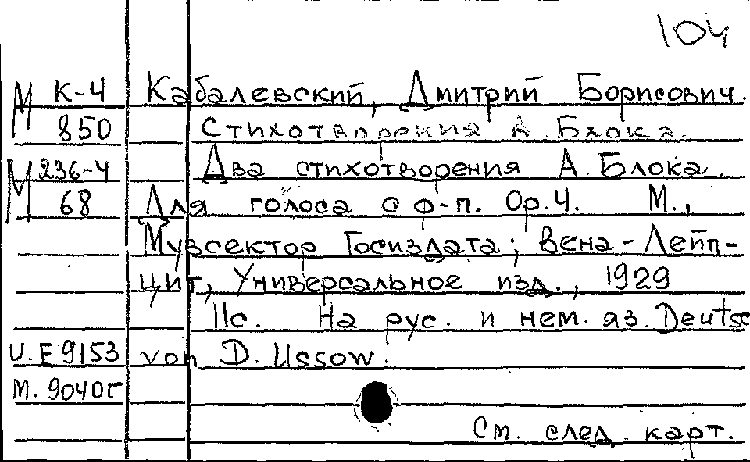 104
М К-4 Кабалевский, Дмитрий Борисович.
850 Стихотворения А. Блока.
М 236-4 Два стихотворения А. Блока.
68 Для голоса с ф-п. Ор.4. М.,
Музсектор Госиздата; Вена-Лейп-
циг, Универсальное изд., 1929
11с. На рус. и нем. яз. Deutsc
U.E 9153 von D. Ussow.
М. 9040г
См. след. карт.